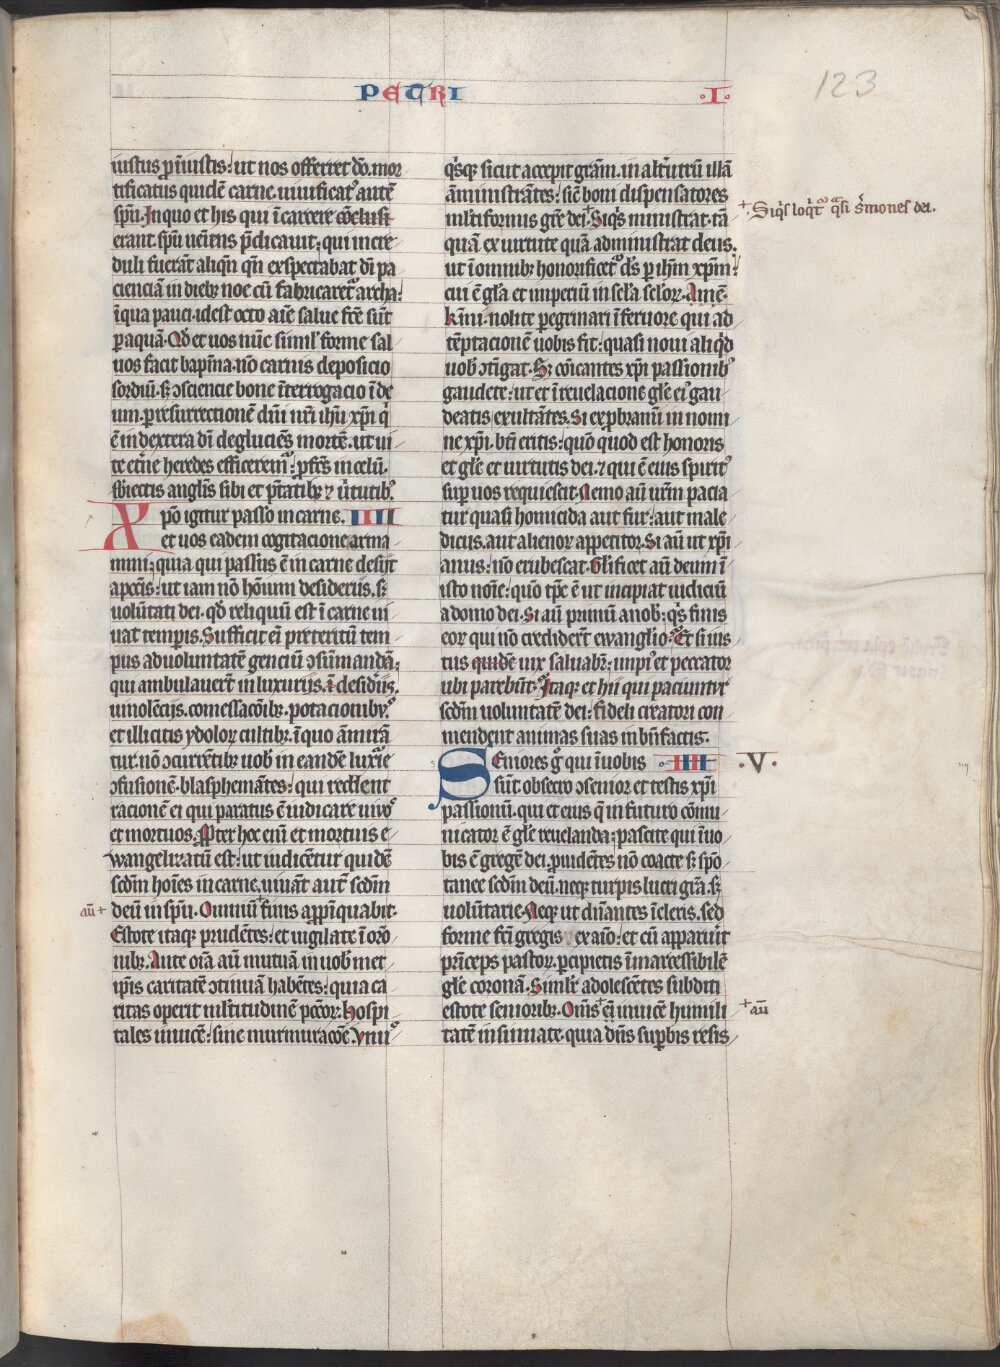 PETRI
·I·
123
iustus ꝓ iniustis: ut nos offerret do. mor
tificatus quidē carne. uiuificatꝰ autē
spū. In quo et his qui ī carcere cōclusi
erant. spū ueniens p̄dicauit: qui incre
duli fuerāt aliqn̄ qn̄ exspectabat dī pa
cienciā in diebꝫ noe cū fabricaretᷣ archa:
ī qua pauci. idest octo aīe salue fc̄e sūt
ꝑ aquā. Qd̄ et uos nūc simil̓ forme sal
uos facit baptīma. nō carnis deposicio
sordiū. sꝫ ꝯsciencie bone īterrogacio ī de
um. ꝑ resurrectionē dn̄i nr̄i ihū xp̄i q̓
ē in dextera dī degluciēs mortē. ut ui
te et̓ne heredes efficeremᷣ: ꝓfc̄s in celū.
sbiectis anglīs sibi et p̄tatibꝫ ⁊ ūtutibꝫ.
Xpō igitur passo in carne. IIII
et uos eadem cogitacione arma
mini: quia qui passus ē in carne desijt
a pcc̄is: ut iam nō hōinum desiderijs. sꝫ
uolūtati dei. qd̄ reliquū est ī carne ui
uat temporis. Sufficit eī preteritū tem
pus ad uoluntatē genciū ꝯsūmandā:
qui ambulauer̄t in luxurijs. ī desid̓ijs.
uinolēcijs. comessacōibꝫ. potacionibꝫ.
et illicitis ydoloꝝ cultibꝫ. ī quo āmirā
tur. nō ꝯcurrētibꝫ uob̄ in eandē luxͥie
ꝯfusionē. blasphemātes: qui reddent
racionē ei qui paratus ē iudicare uiuoˢ
et mortuos. Ꝓpter hoc enī et mortuis e
wangelizatū est: ut iudicētur quidē
scd̄m hoīes in carne. uiuāt aut̄ scd̄m
aū +
deū in spū. Omniū + finis appīquabit.
Estote itaqꝫ prudētes: et uigilate ī orō
nibꝫ. Ante oīa aū mutuā in uob̄ met
ip̄is caritatē ꝯtinuā habētes: quia ca
ritas operit ml̓titudinē pcc̄oꝝ. Hospi
tales inuicē: sine murmuracōe. Vnuˢ
q̓sqꝫ sicut accepit grām. in alt̓utrū illā
āministrātes: sic̄ boni dispensatores
ml̓tiformis gr̄e dei.+ Siq̓s ministrat. tā
+. Siq̓s loq̓tᷣ q̄si s̓mones dei.
quā ex uirtute quā administrat deus.
ut ī omnibꝫ honorificetᷣ ds̄ ꝑ ihm̄ xpm̄:
cui ē gl̄a et imperiū in scl̄a scl̄oꝝ. Amē.
Kīmi. nolite peregrinari ī feruore qui ad
tēptacionē uobis fit: quasi noui aliq̓d
uob̄ ꝯtīgat. Sꝫ cōicantes xpī passionibꝰ
gaudete: ut et ī reuelacione gl̄e eiꝰ gau
deatis exultātes. Si exprobramī in nomi
ne xpī. bn̄ eritis: quō quod est honoris
et gl̄e et uirtutis dei. ⁊ qui ē eius spiritꝰ
suꝑ uos requiescit. Nemo aū ur̄m pacia
tur quasi homicida aut fur: aut male
dicus. aut alienoꝝ appetitor. Si aū ut xpī
anus: nō erubescat. Gl̄ificet aū deum ī
isto noīe: quō tp̄c ē ut incipiat iudiciū
a domo dei. Si aū primū a nob̄: q̓s finis
eoꝝ qui nō credider̄t ewanglio: Et si ius
tus quidē uix saluabᷣ: impiꝰ et peccator
ubi parebūt: Itaqꝫ et hii qui paciuntᷣ
scd̄m uoluntatē dei: fideli creatori con
mendent animas suas in bn̄factis.
Seniores g̊ qui ī uobis IIII
·V·
sūt. obsecro ꝯsenior et testis xpī
passionū. qui et eius q̄ in futuro cōmu
nicator ē gl̄e reuelanda: pascite qui ī uo
bis ē gregē dei. prouidētes nō coacte sꝫ spō
tanee scd̄m deū. neqꝫ turpis lucri grā. sꝫ
uolūtarie. Neqꝫ ut dn̄antes ī cleris. sed
forme fc̄i gregis ex aīo: et cū apparuīt
p̄nceps pastoꝝ. ꝑcipietis īmarcessibilē
gl̄e coronā. Simil̓r adolescētes subditi
estote senioribꝫ. Om̄s + eī inuicē humili
+ aū
tatē insinuate. quia dn̄s suꝑbis resis